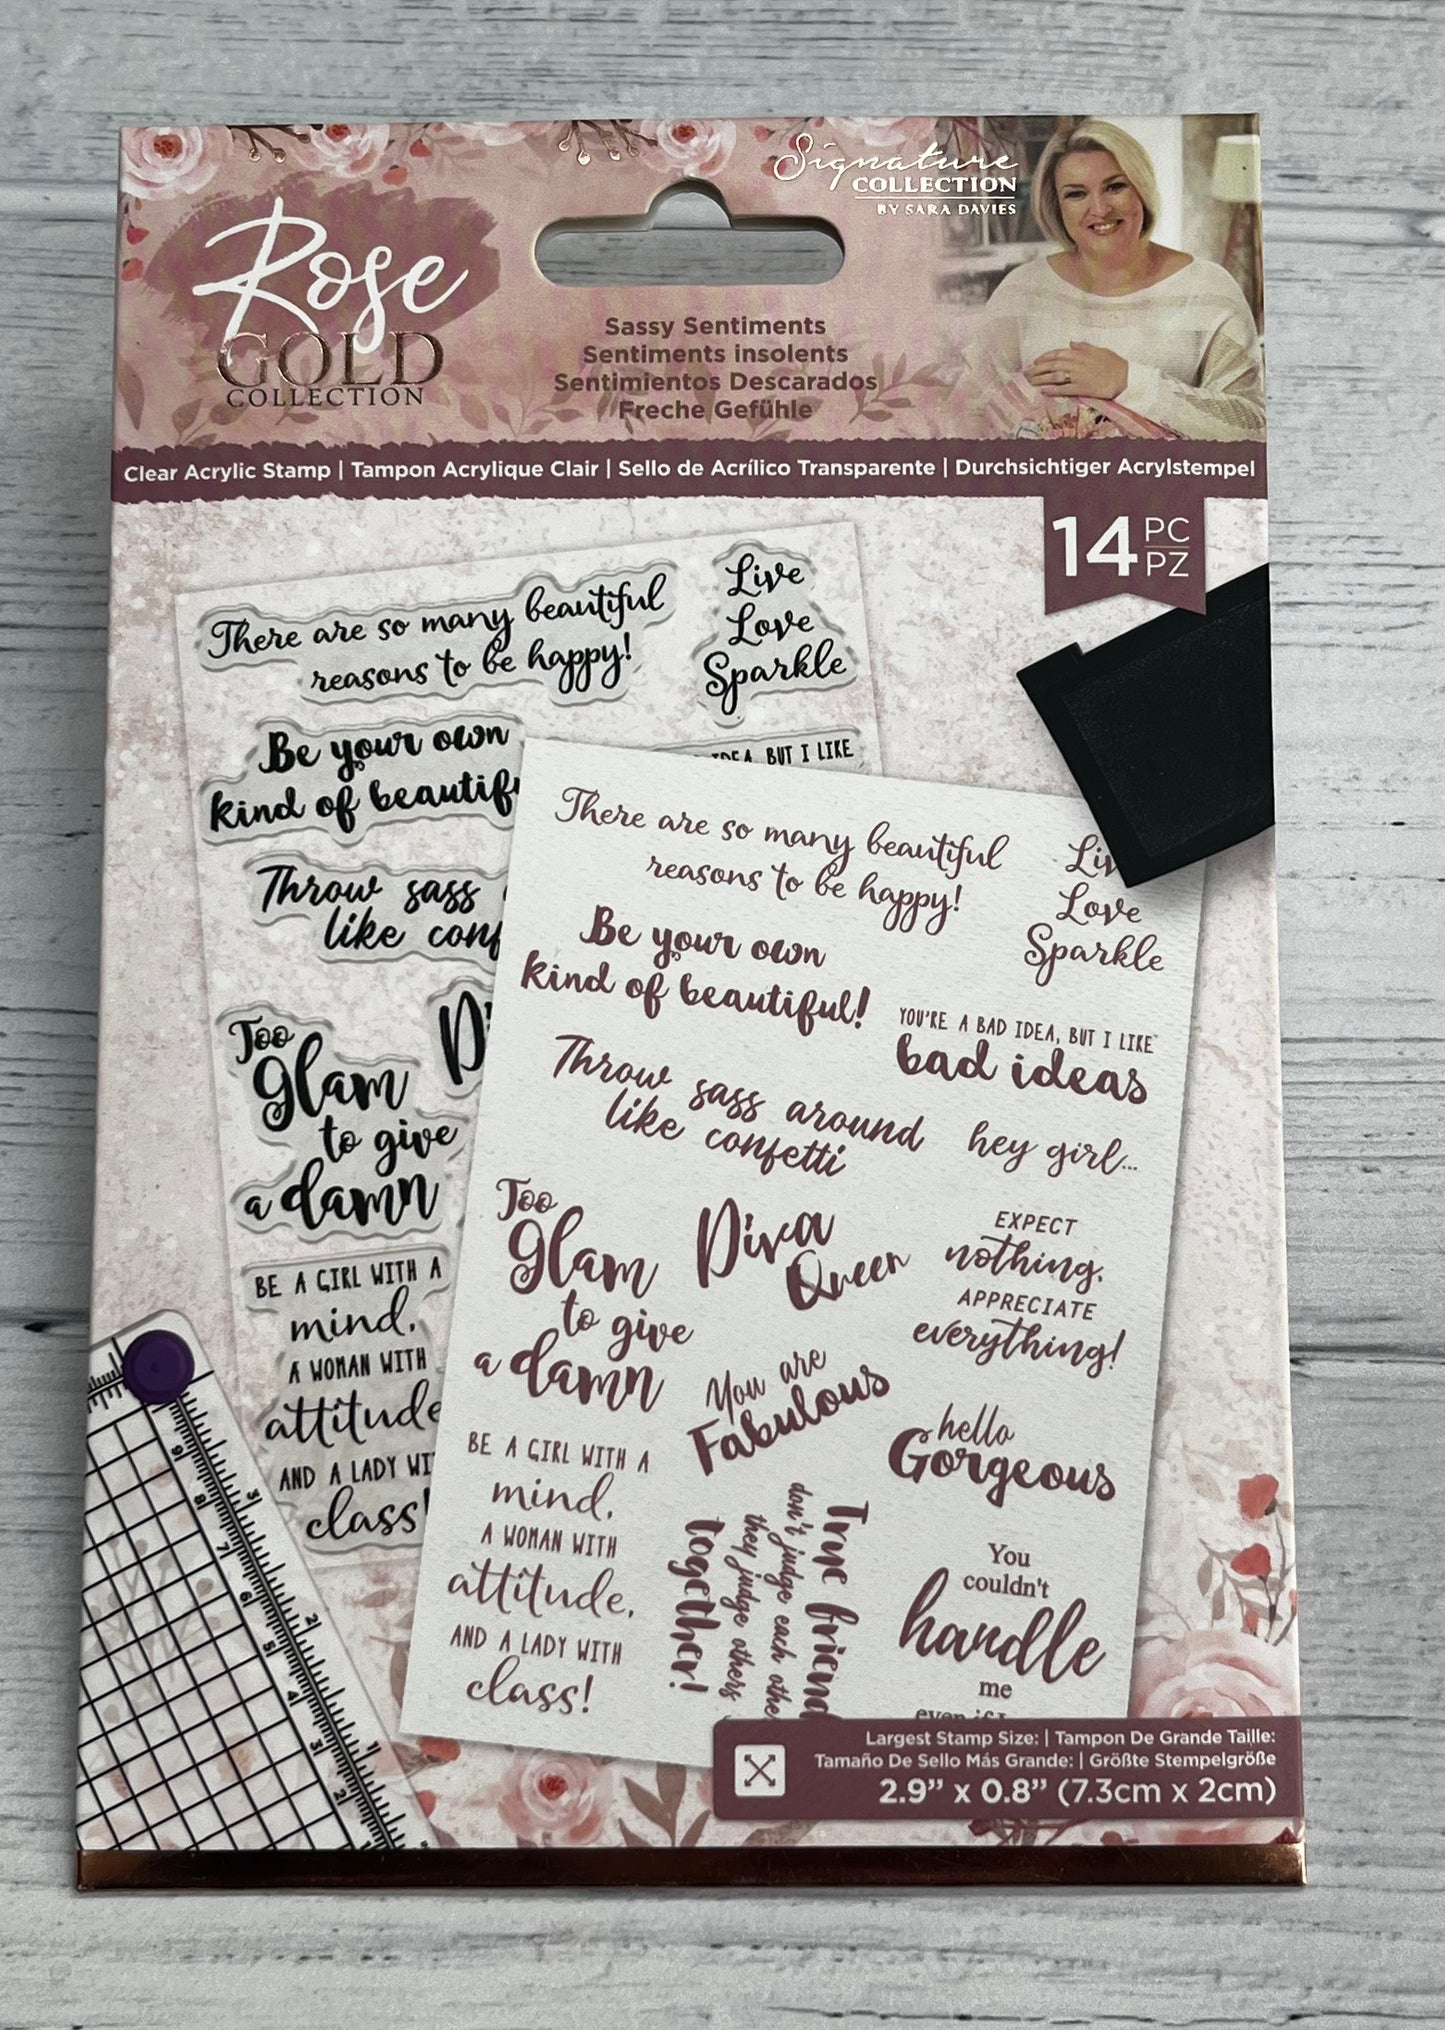 Signature
COLLECTION
BY SARA DAVIES
Rose
GOLD
COLLECTION
Sassy Sentiments
Sentiments insolents
Sentimientos Descarados
Freche Gefühle
Clear Acrylic Stamp | Tampon Acrylique Clair | Sello de Acrílico Transparente | Durchsichtiger Acrylstempel
14 PC
PZ
There are so many beautiful
reasons to be happy!
Live
Love
Sparkle
Be your own
kind of
IDEA, BUT I LIKE
Throw sass
like
Too
Glam
to give
a damn
BE A GIRL WITH A
mind,
A WOMAN WITH
attitude
AND A LADY
class!
There are so many beautiful
reasons to be happy!
Love
Sparkle
Be your own
kind of beautiful!
YOU'RE A BAD IDEA, BUT I LIKE
bad ideas
Throw sass around
like confetti
hey girl...
Too
Glam
to give
a damn
Diva
Queen
EXPECT
nothing,
APPRECIATE
everything!
You are
Fabulous
hello
Gorgeous
BE A GIRL WITH A
mind,
A WOMAN WITH
attitude,
AND A LADY WITH
class!
True
don't judge each
they judge others
together!
You
couldn't
handle
me
even if I
Largest Stamp Size: | Tampon De Grande Taille:
Tamaño De Sello Más Grande: | Größte Stempelgröße
2.9” x 0.8” (7.3cm x 2cm)